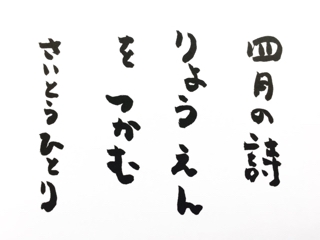 四月の詩
りょうえん
を つかむ
さいとうひとり